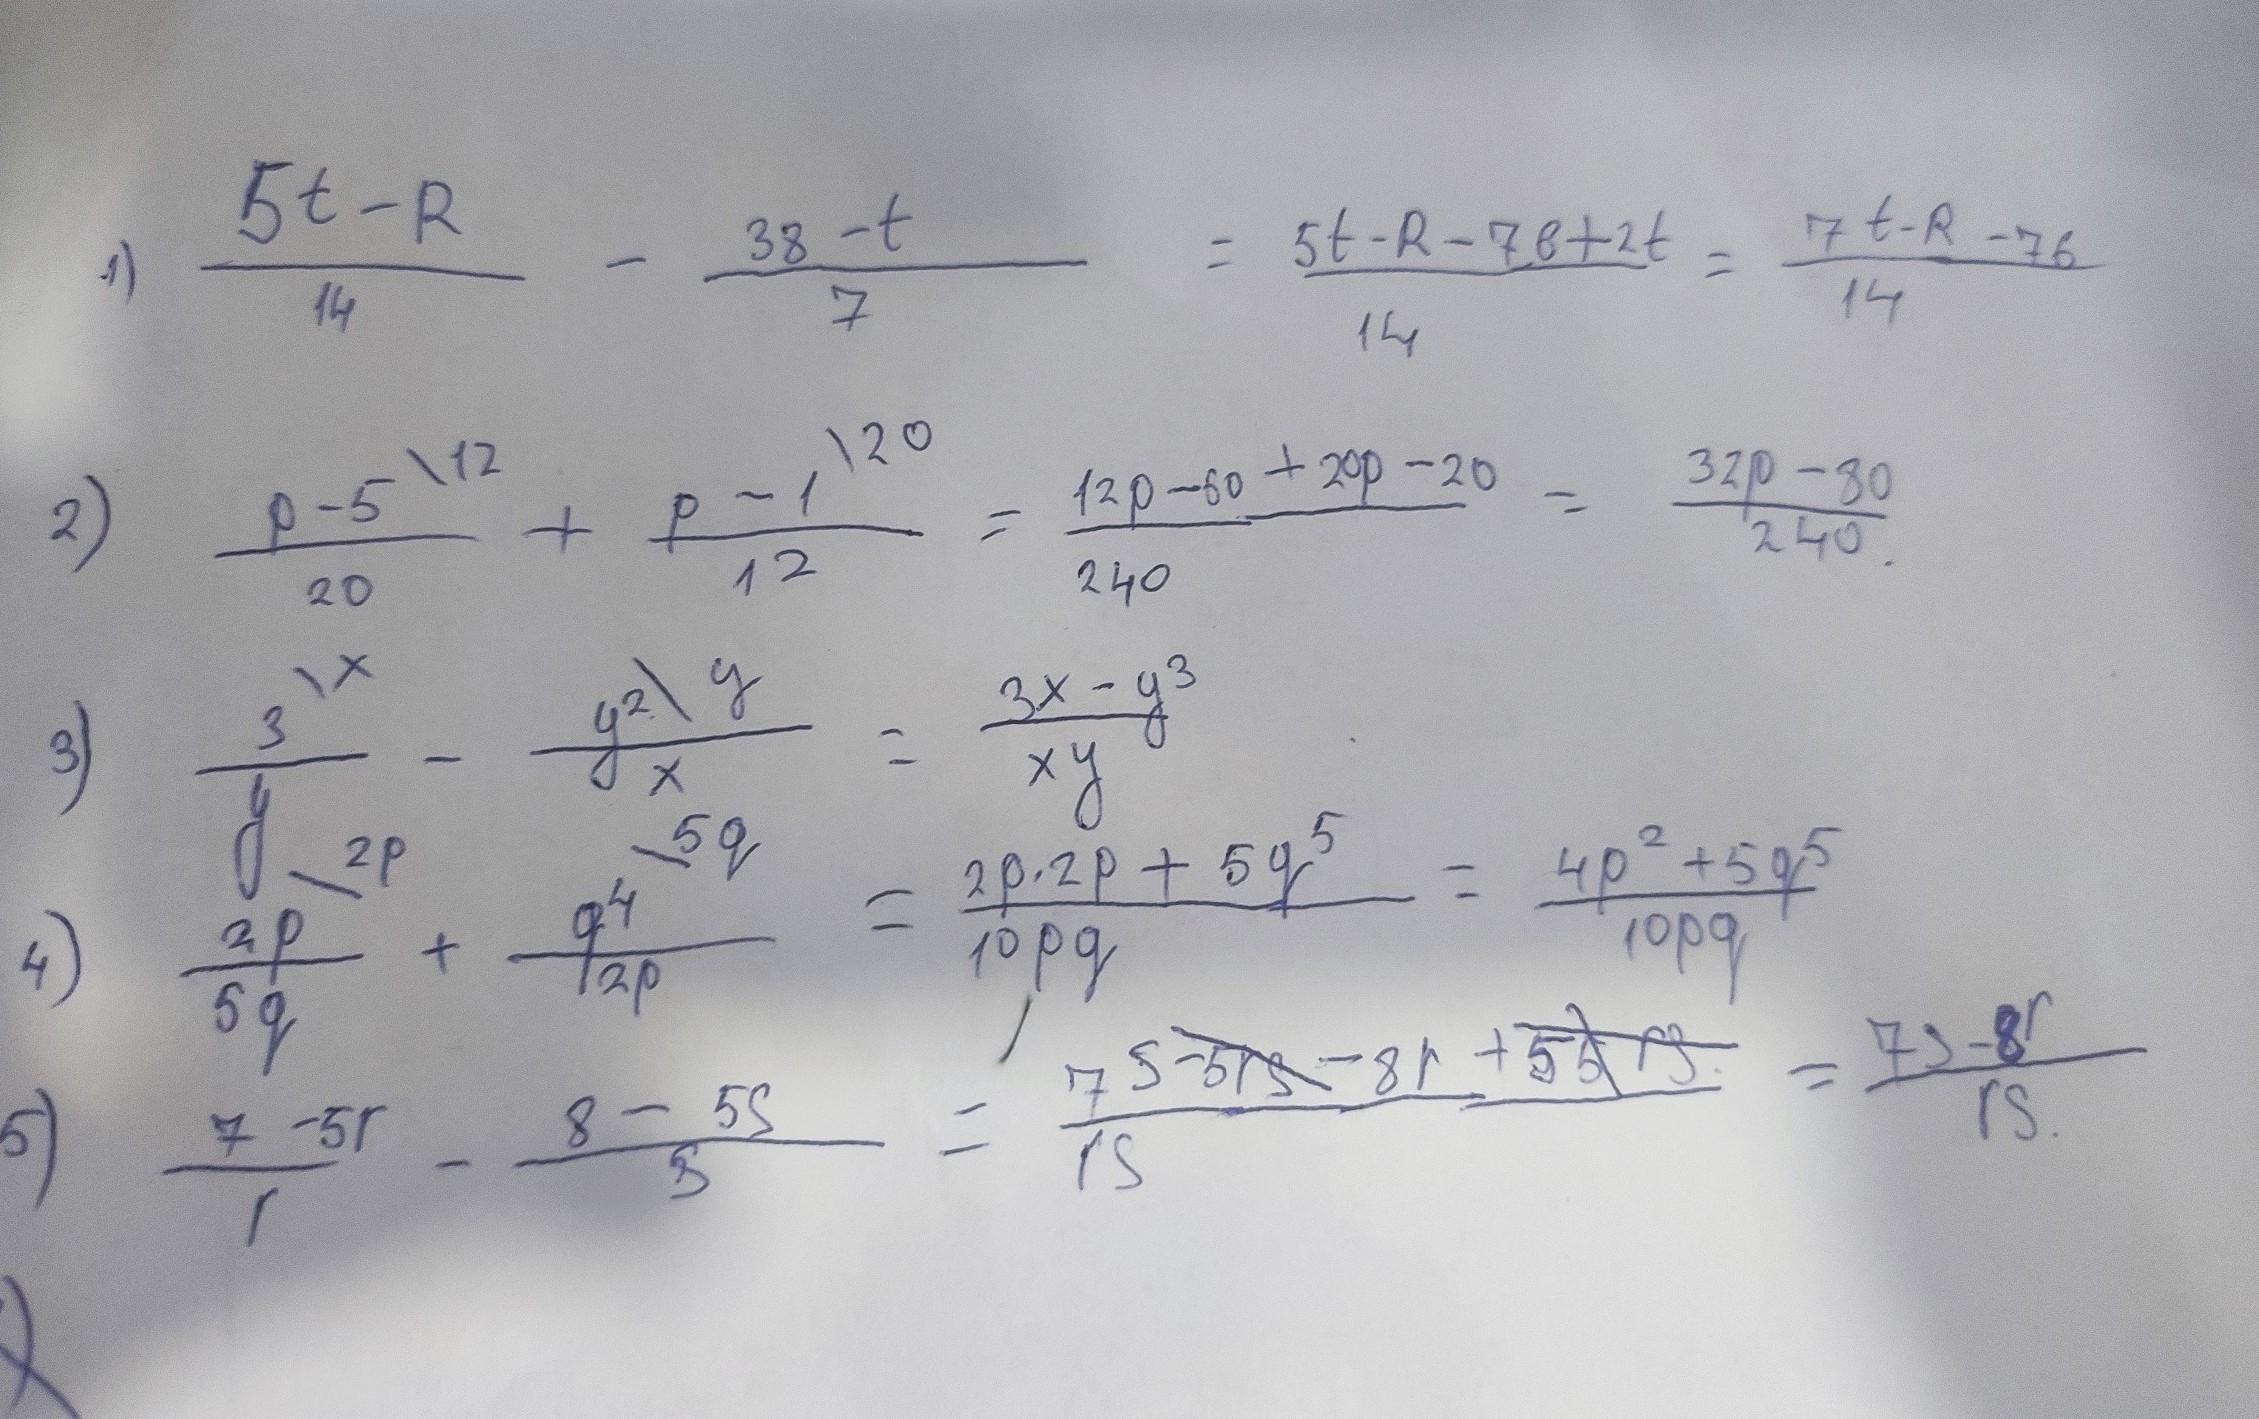 1) (5t-R)/14 - (38-t)/7 = (5t-R-76+2t)/14 = (7t-R-76)/14
2) (p-5)/20 \12 + (p-1)/12 \20 = (12p-60+20p-20)/240 = (32p-80)/240.
3) 3/y \x - y²/x \y = (3x-y³)/xy
4) 2p/5q \2p + q⁴/2p \5q = (2p·2p+5q⁵)/10pq = (4p²+5q⁵)/10pq
5) (7-5r)/r - (8-5s)/s = (7s-5rs-8r+55rs.)/rs = (7s-8r)/rs.